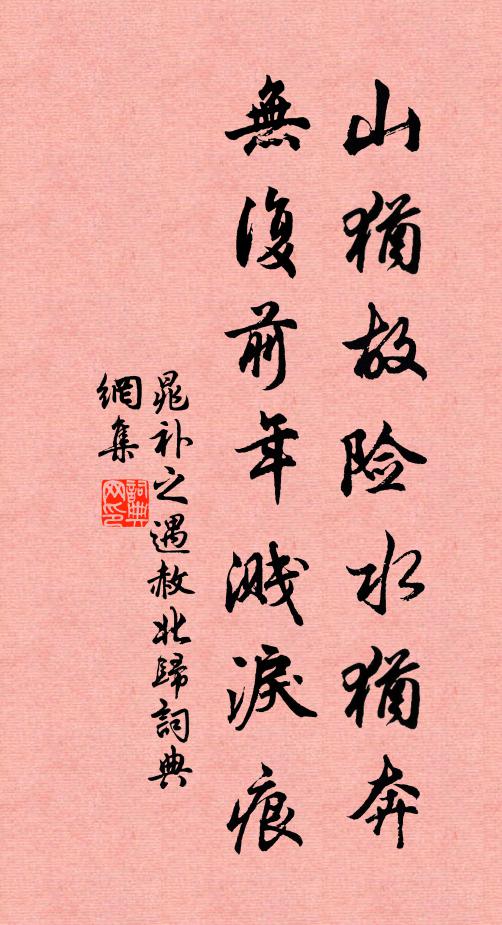 山猶故险水猶奔
無復前年溅淚痕
晁补之遇赦北歸詞典
網集
詞典网印